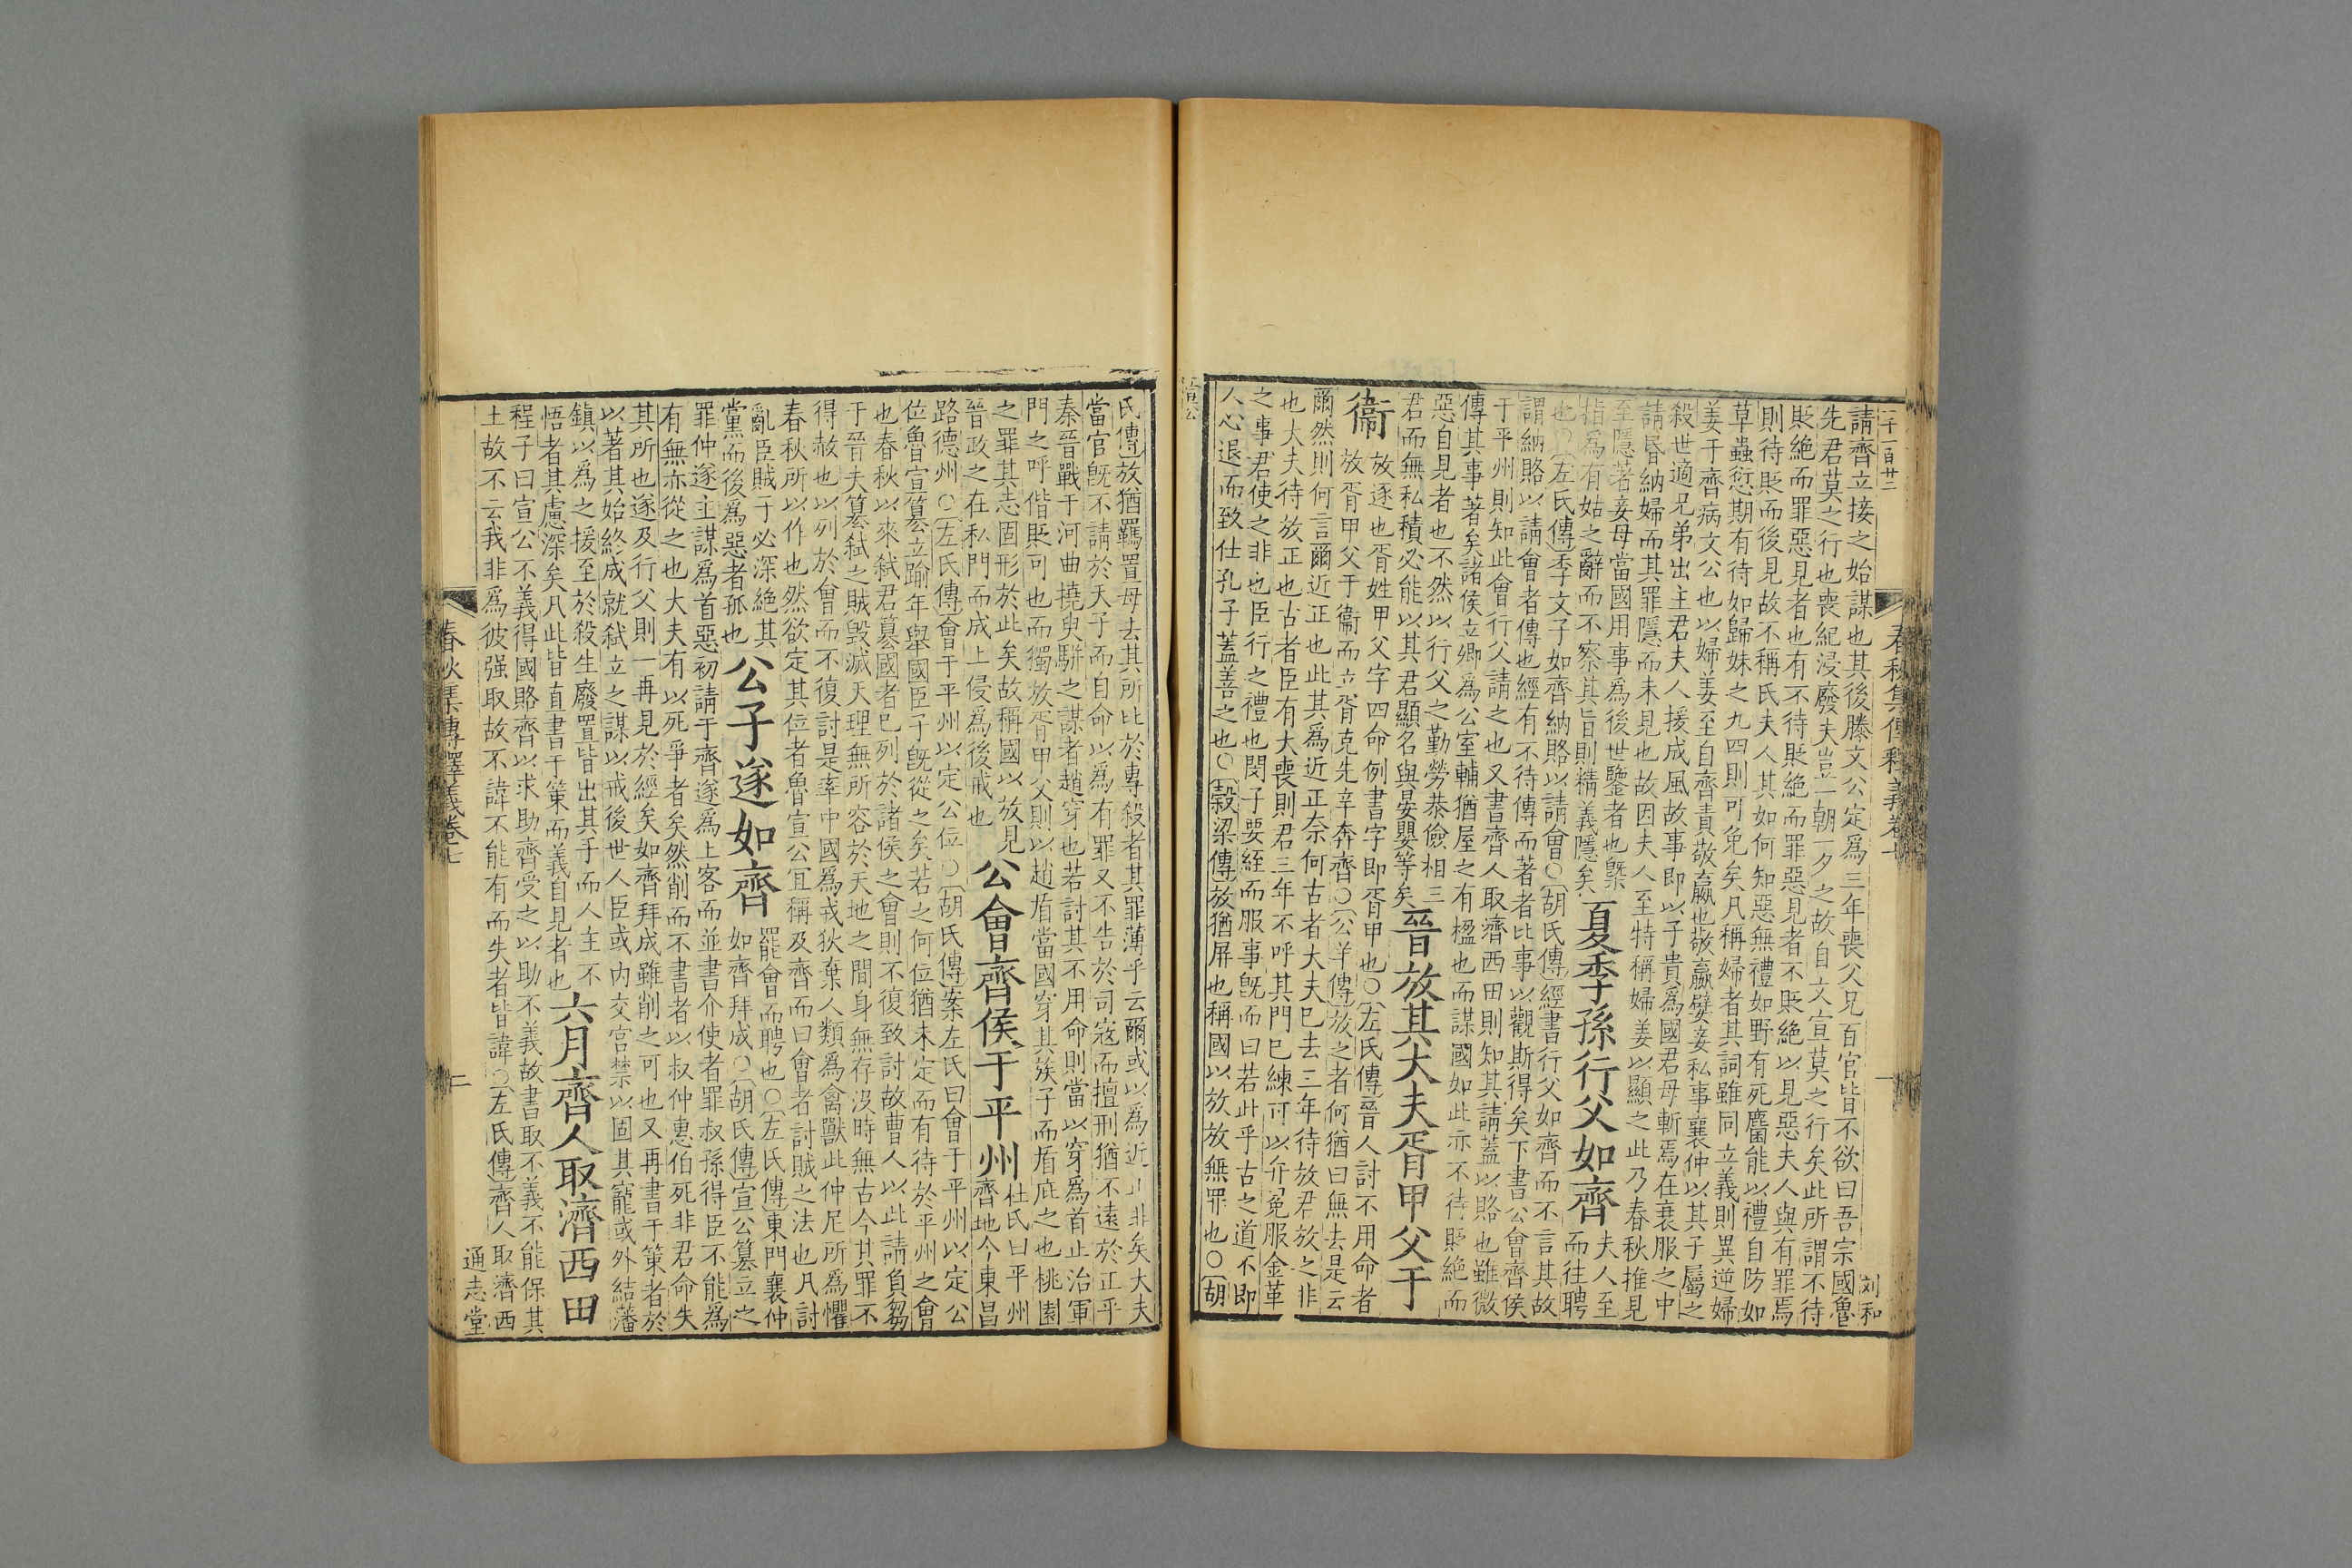 二千一百廿二
春秋集傳釋義卷七
一
刘和
請齊立接之始謀也其後滕文公定爲三年喪父兄百官皆不欲曰吾宗國魯
先君莫之行也喪紀浸廢夫豈一朝一夕之故自文宣莫之行矣此所謂不待
貶絶而罪惡見者也有不待貶絶而罪惡見者不貶絶以見惡夫人與有罪焉
則待貶而後見故不稱氏夫人其如何知惡無禮如野有死麕能以禮自防如
草蟲愆期有待如歸妹之九四則可免矣凡稱婦者其詞雖同立義則異逆婦
姜于齊病文公也以婦姜至自齊責敬嬴也敬嬴嬖妾私事襄仲以其子屬之
殺世適兄弟出主君夫人援成風故事即以子貴爲國君母斬焉在衰服之中
請昬納婦而其罪隱而未見也故因夫人至特稱婦姜以顯之此乃春秋推見
至隱著妾母當國用事爲後世鑒者也槩
指爲有姑之辭而不察其旨則精義隱矣
夏季孫行父如齊
夫人至
而往聘
也○左氏傳季文子如齊納賂以請會○胡氏傳經書行父如齊而不言其故
謂納賂以請會者傳也經有不待傳而著者比事以觀斯得矣下書公會齊侯
于平州則知此會行父請之也又書齊人取濟西田則知其請蓋以賂也雖微
傳其事著矣諸侯立卿爲公室輔猶屋之有楹也而謀國如此亦不待貶絶而
惡自見者也不然以行父之勤勞恭儉相三
君而無私積必能以其君顯名與晏嬰等矣
晉放其大夫胥甲父于
衞
放逐也胥姓甲父字四命例書字即胥甲也○左氏傳晉人討不用命者
放胥甲父于衞而立胥克先辛奔齊○公羊傳放之者何猶曰無去是云
爾然則何言爾近正也此其爲近正奈何古者大夫已去三年待放君放之非
也大夫待放正也古者臣有大喪則君三年不呼其門已練可以弁冕服金革
之事君使之非也臣行之禮也閔子要絰而服事旣而曰若此乎古之道不即
人心退而致仕孔子蓋善之也○穀梁傳放猶屏也稱國以放放無罪也○胡
宣公
氏傳放猶羈置毋去其所比於專殺者其罪薄乎云爾或以爲近正非矣大夫
當官旣不請於天子而自命以爲有罪又不告於司寇而擅刑猶不遠於正乎
秦晉戰于河曲撓臾駢之謀者趙穿也若討其不用命則當以穿爲首止治軍
門之呼偕貶可也而獨放胥甲父則以趙盾當國穿其族子而盾庇之也桃園
之罪其志固形於此矣故稱國以放見
晉政之在私門而成上侵爲後戒也
公會齊侯于平州
杜氏曰平州
齊地今東昌
路德州○左氏傳會于平州以定公位○胡氏傳案左氏曰會于平州以定公
位魯宣簒立踰年舉國臣子旣從之矣若之何位猶未定而有待於平州之會
也春秋以來弑君簒國者已列於諸侯之會則不復致討故曹人以此請負芻
于晉夫簒弑之賊毀滅天理無所容於天地之間身無存沒時無古今其罪不
得赦也以列於會而不復討是率中國爲戎狄棄人類爲禽獸此仲尼所爲懼
春秋所以作也然欲定其位者魯宣公宜稱及齊而曰會者討賊之法也凡討
亂臣賊子必深絶其
黨而後爲惡者孤也
公子遂如齊
罷會而聘也○左氏傳東門襄仲
如齊拜成○胡氏傳宣公簒立之
罪仲遂主謀爲首惡初請于齊遂爲上客而並書介使者罪叔孫得臣不能爲
有無亦從之也大夫有以死爭者矣然削而不書者以叔仲惠伯死非君命失
其所也遂及行父則一再見於經矣如齊拜成雖削之可也又再書于策者於
以著其始終成就弑立之謀以戒後世人臣或內交宮禁以固其寵或外結藩
鎮以爲之援至於殺生廢置皆出其手而人主不
悟者其慮深矣凡此皆直書于策而義自見者也
六月齊人取濟西田
程子曰宣公不義得國賂齊以求助齊受之以助不義故書取不義不能保其
土故不云我非爲彼强取故不諱不能有而失者皆諱○左氏傳齊人取濟西
春秋集傳釋義卷七
二
通志堂